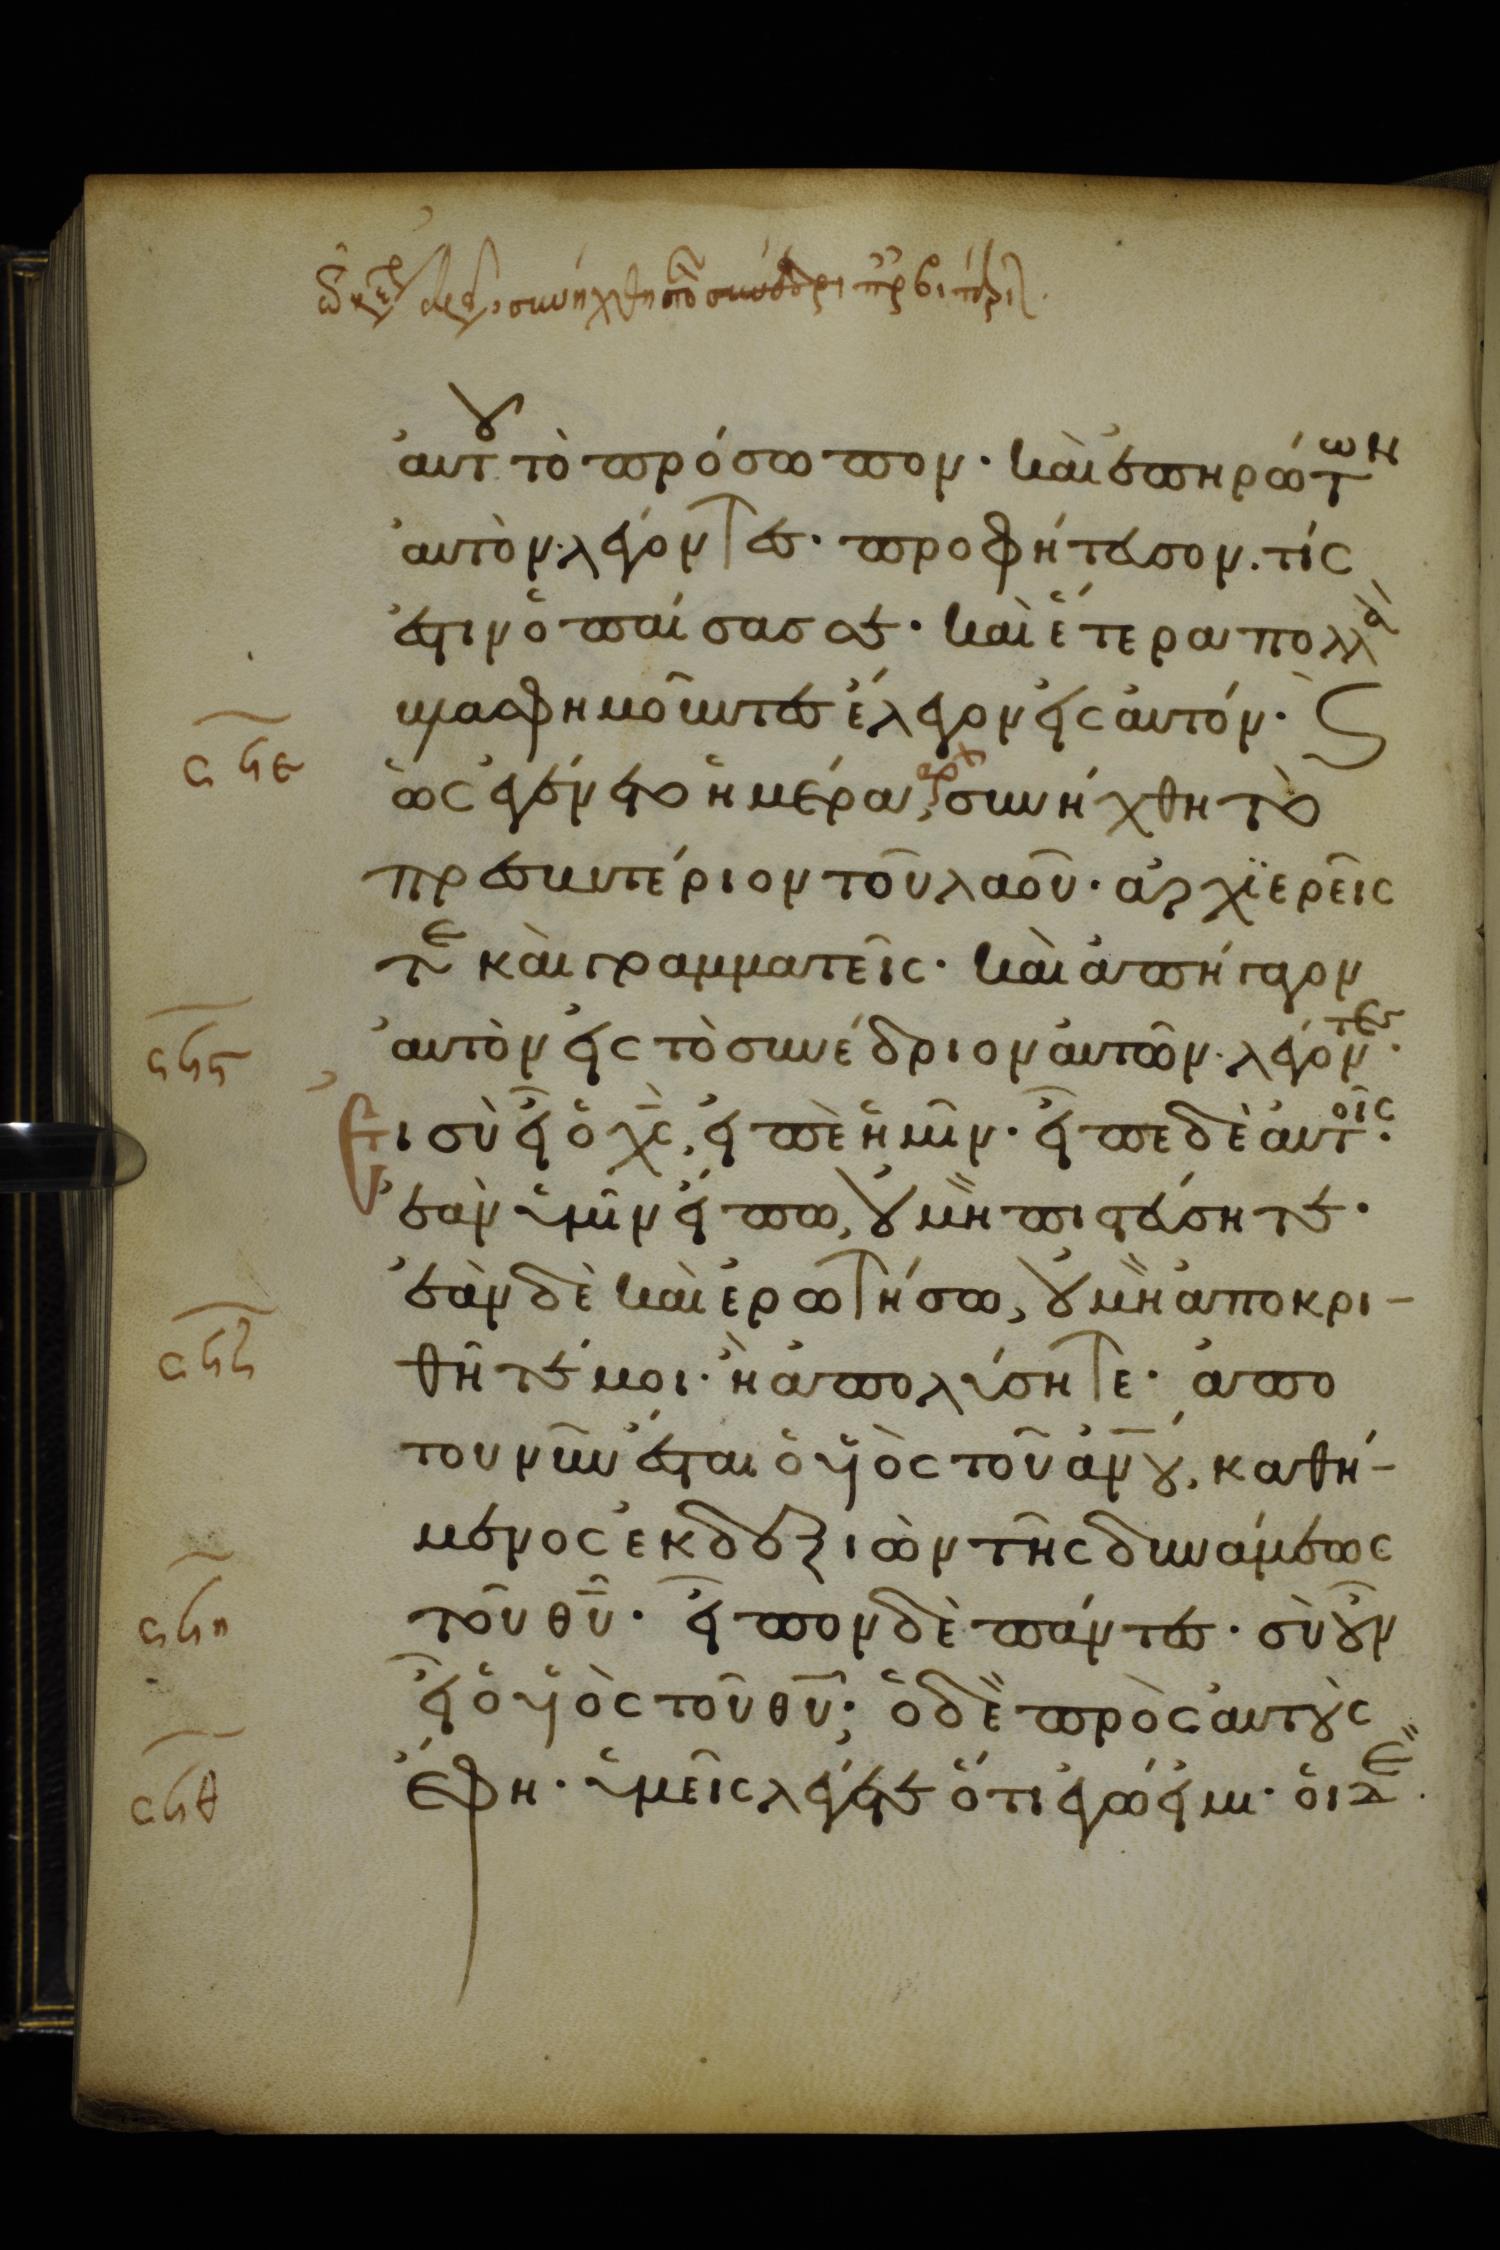 αὐτοῦ τὸ πρόσωπον· καὶ ἐπηρώτων
αὐτὸν· λέγοντες· προφήτευσον. τίς
ἐστιν ὁ παίσας σε· καὶ ἕτερα πολλὰ
βλασφημοῦντες ἔλεγον εἰς αὐτόν· Ϛ
σϟε
ὡς ἐγένετο ἡμέρα, συνήχθη τὸ
πρεσβυτέριον τοῦ λαοῦ· ἀρχϊερεῖς
τε καὶ γραμματεῖς· καὶ ἀπήγαγον
σϟϛ
αὐτὸν εἰς τὸ συνέδριον αὐτῶν· λέγοντες·
Εἰ σὺ εἶ ὁ χς, εἰπὲ ἡμῖν· εἶπε δὲ αὐτοῖς·
ἐὰν ὑμῖν εἴπω, οὐ μὴ πιστεύσητε·
σϟζ
ἐὰν δὲ καὶ ἐρωτήσω, οὐ μὴ ἀποκρι-
θῆτέ μοι· ἢ ἀπολύσητε· ἀπο
του νῦν ἔσται ὁ υἱὸς τοῦ ἀνου, καθή-
μενος ἐκ δεξιῶν τῆς δυνάμεως
σϟη
τοῦ θυ· εἶπον δὲ πάντες· σὺ οὖν
εἶ ὁ υἱὸς τοῦ θυ; ὁ δὲ πρὸς αὐτοὺς
σϟθ
ἔφη· ὑμεῖς λέγετε ὅτι ἐγώ εἰμι· οἱ δὲ